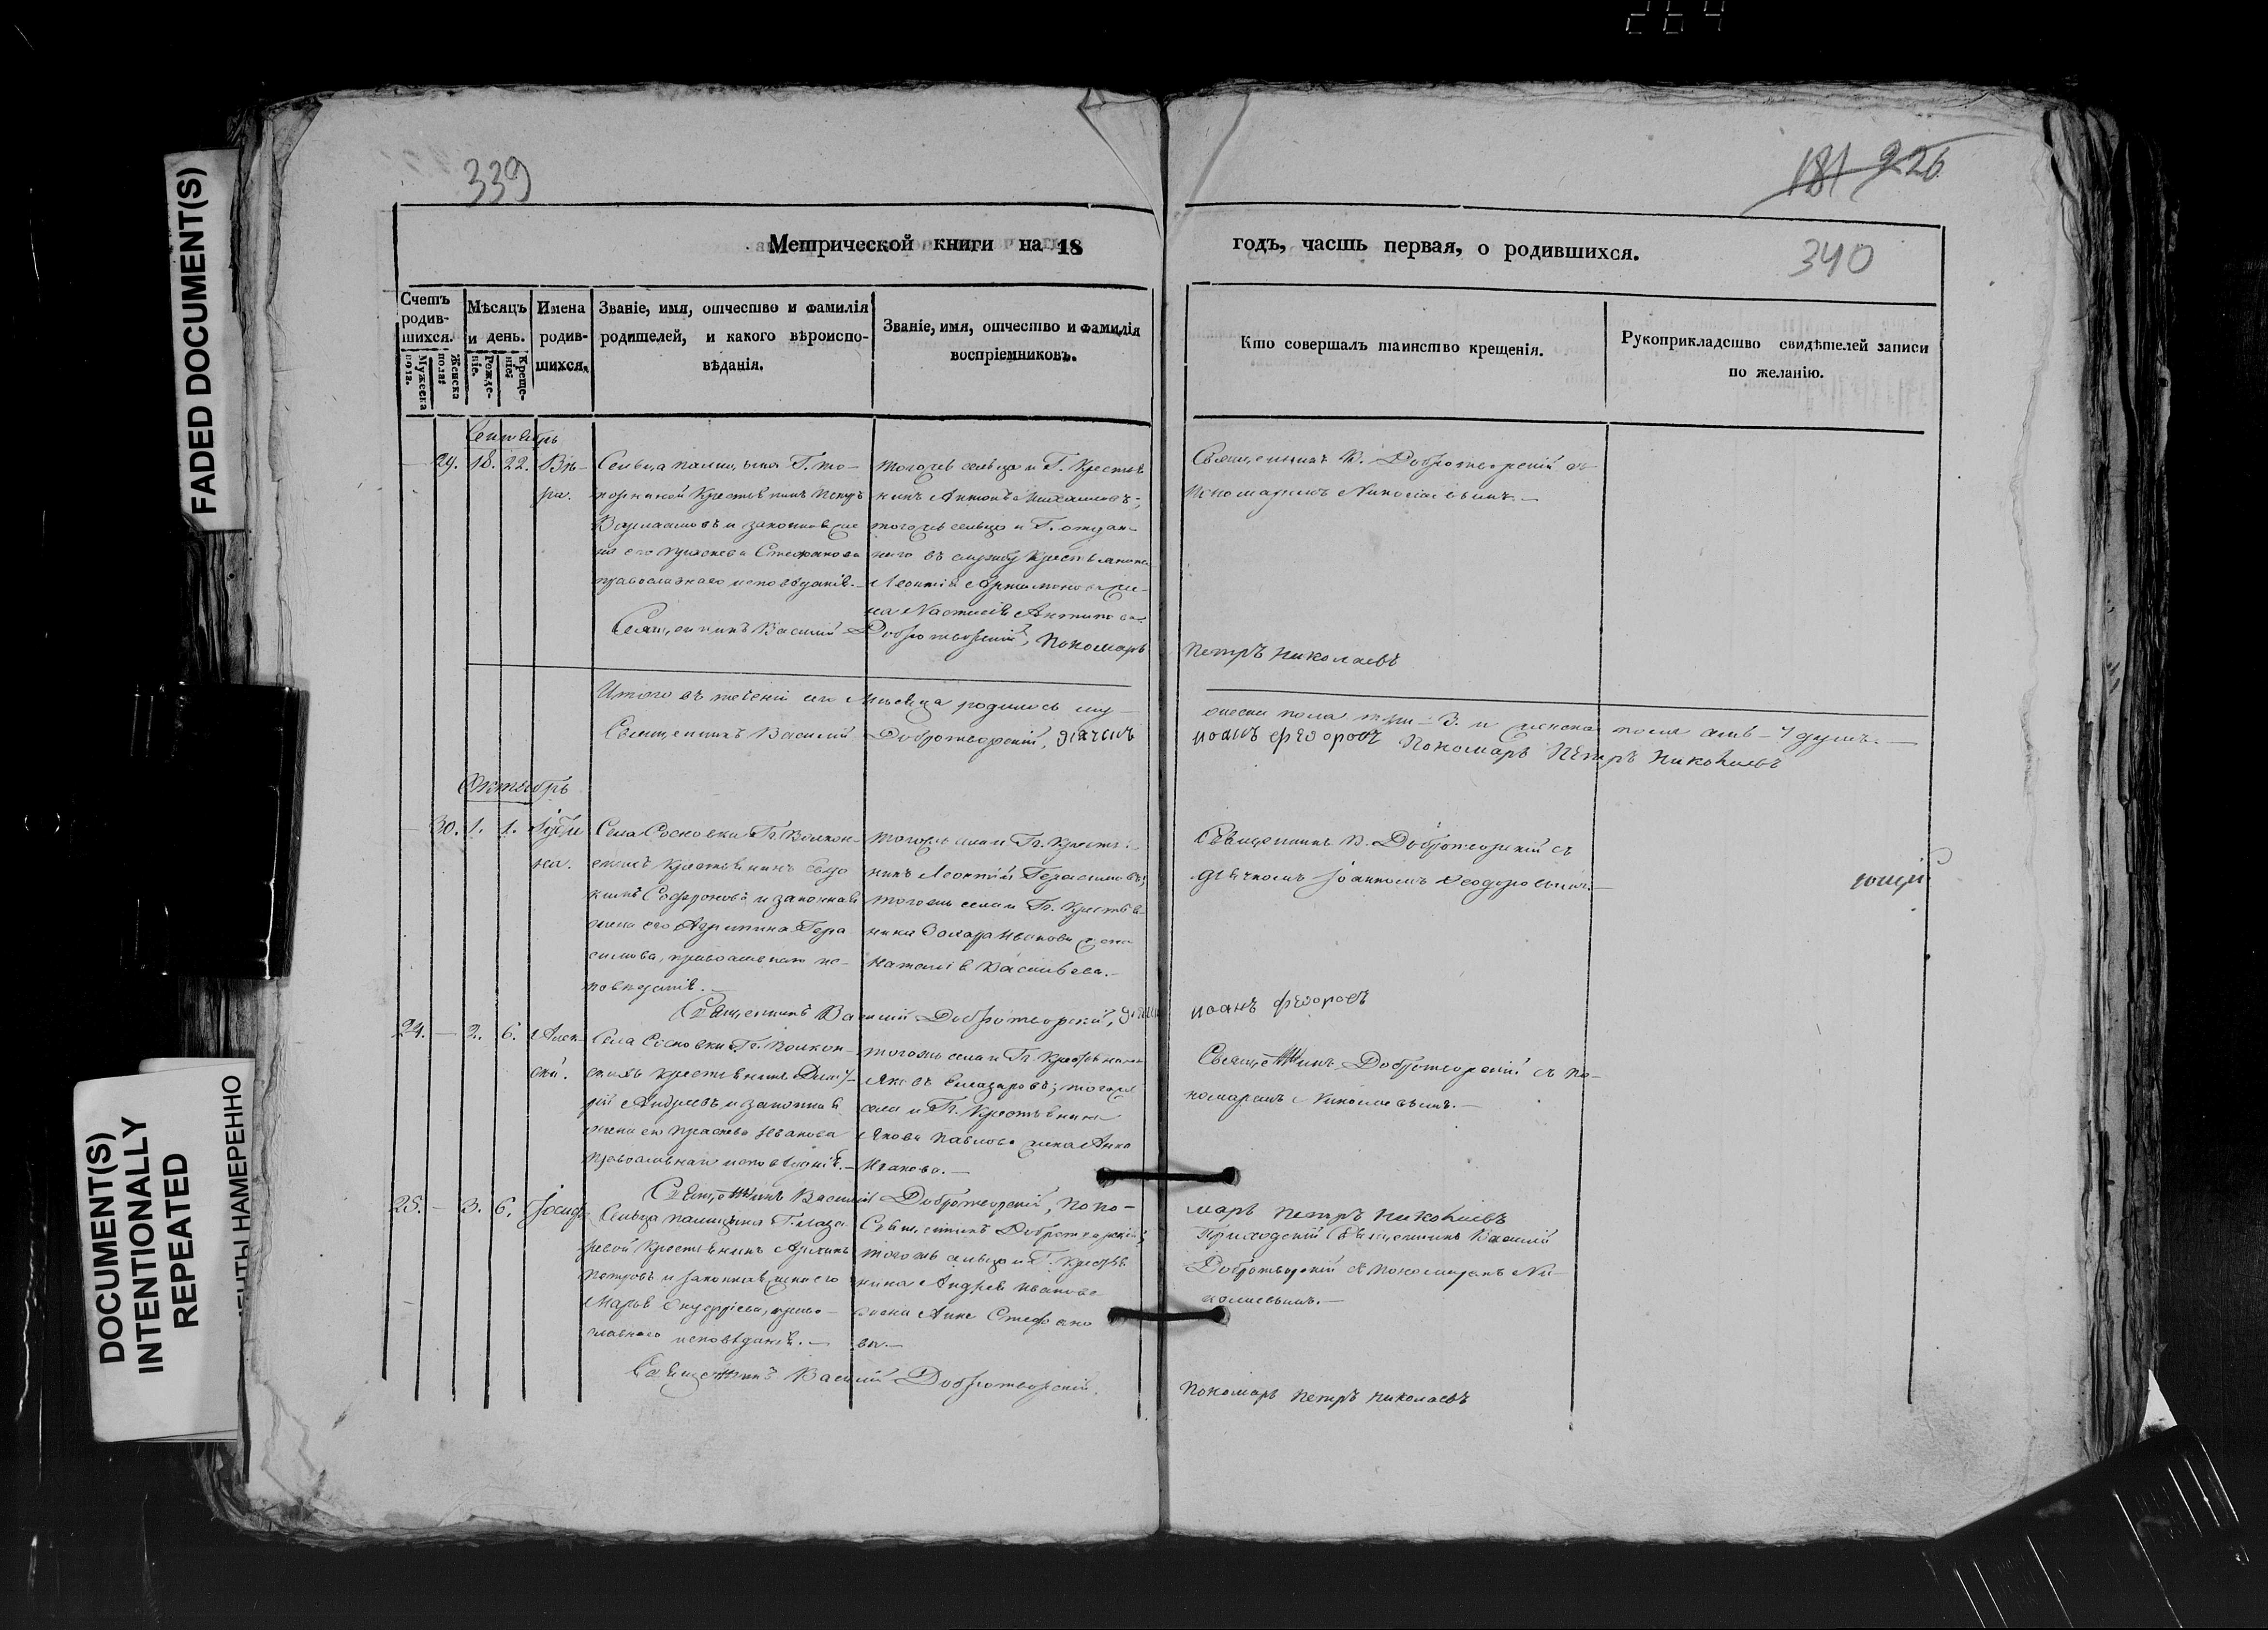 264
FADED DOCUMENT(S)
DOCUMENT(S)
INTENTIONALLY
REPEATED
НАМЕРЕННО
339
181 226
340
Метрической книги на 18
годъ, часть первая, о родившихся.
Счетъ родив-шихся.
Мужеска пола.
Женска пола.
Мѣсяцъ и день.
Рожде-нiе.
Креще-нiе.
Имена родив-шихся.
Званiе, имя, отчество и фамилiя
родителей, и какого вѣроиспо-
вѣданiя.
Званiе, имя, отчество и фамилiя
воспрiемниковъ.
Кто совершалъ таинство крещенiя.
Рукоприкладство свидѣтелей записи
по желанiю.
Сентябрь
29. 18. 22. Вѣ-
ра.
Сельца
крестьянинъ Петръ
и законная же
на его Стефанова
православнаго исповѣданiя.
тогожъ сельца и Г. крестья
нинъ Антонъ
тогожъ сельца и Г. отдан-
наго въ службу крестьянина
Священникъ В. Добротворскiй съ
пономаремъ Николаевымъ.
Священникъ Василiй Добротворскiй, Пономарь
Петръ Николаевъ
Итого въ теченiи сего мѣсяца родилось му-
жеска пола три - 3. и женска пола
Священникъ Василiй Добротворскiй, дьячекъ
иоанъ федоровъ Пономарь Петръ Николаевъ
Октябрь
30. 1. 1.
Села Сосновки Гг. Волкон-
скихъ крестьянинъ Евдо
кимъ Софроновъ и законная
жена его Агрипина Гера
симова, православнаго ис-
повѣданiя.
тогожъ села и Гг. крестья-
нинъ Леонтiй Герасимовъ;
тогожъ села и Гг. крестья-
нина Иванова жена
Наталiя Васильева.
Священникъ В. Добротворскiй съ
дьячкомъ Iоанномъ Ѳеодоровымъ.
Священникъ Василiй Добротворскiй,
иоанъ федоровъ
24. - 2. 6. Алек-
сѣй.
Села Сосновки Гг. Волкон-
скихъ крестьянинъ Дмит-
рiй Андреевъ и законная
жена его Прасковья Иванова
православнаго исповѣданiя.
тогожъ села и Гг. крестьянинъ
Яковъ Елизаровъ; тогожъ
села и Гг. крестьянина
Якова Павлова жена Анна
Иванова.
Священникъ Добротворскiй съ по-
номаремъ Николаевымъ.
Священникъ Василiй Добротворскiй, поно-
марь Петръ Николаевъ
25. - 3. 6. Iосифъ
Сельца
крестьянинъ
Петровъ и законная жена его
Марья Онуфрiева, право-
славнаго исповѣданiя.
Священникъ Добротворскiй;
тогожъ сельца и Г. крестья
нина Андрея Иванова
жена Анна Стефано
ва.
Приходскiй Священникъ Василiй
Добротворскiй съ пономаремъ Ни-
колаевымъ.
Священникъ Василiй Добротворскiй,
Пономарь Петръ Николаевъ